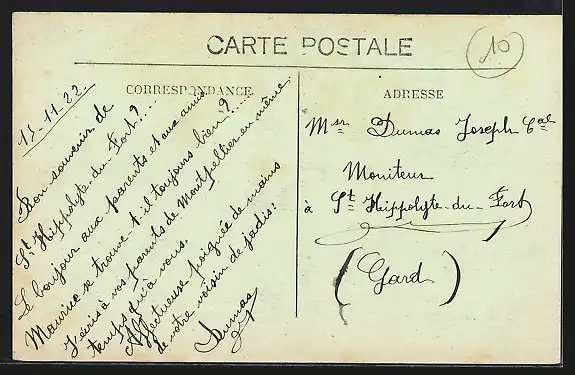 CARTE POSTALE
10
CORRESPONDANCE
15-11-22.
Bon souvenir de
St Hippolyte-du-Fort?....
Le bonjour aux parents et aux amis
Maurice se trouve t-il toujours bien?....
J'écris à vos parents de Montpellier en même
temps qu'à vous.
Affectueuse poignée de mains
de votre voisin de jadis!
Dumas
ADRESSE
Msr Dumas Joseph Cal
Moniteur
à St Hippolyte-du-Fort
(Gard)